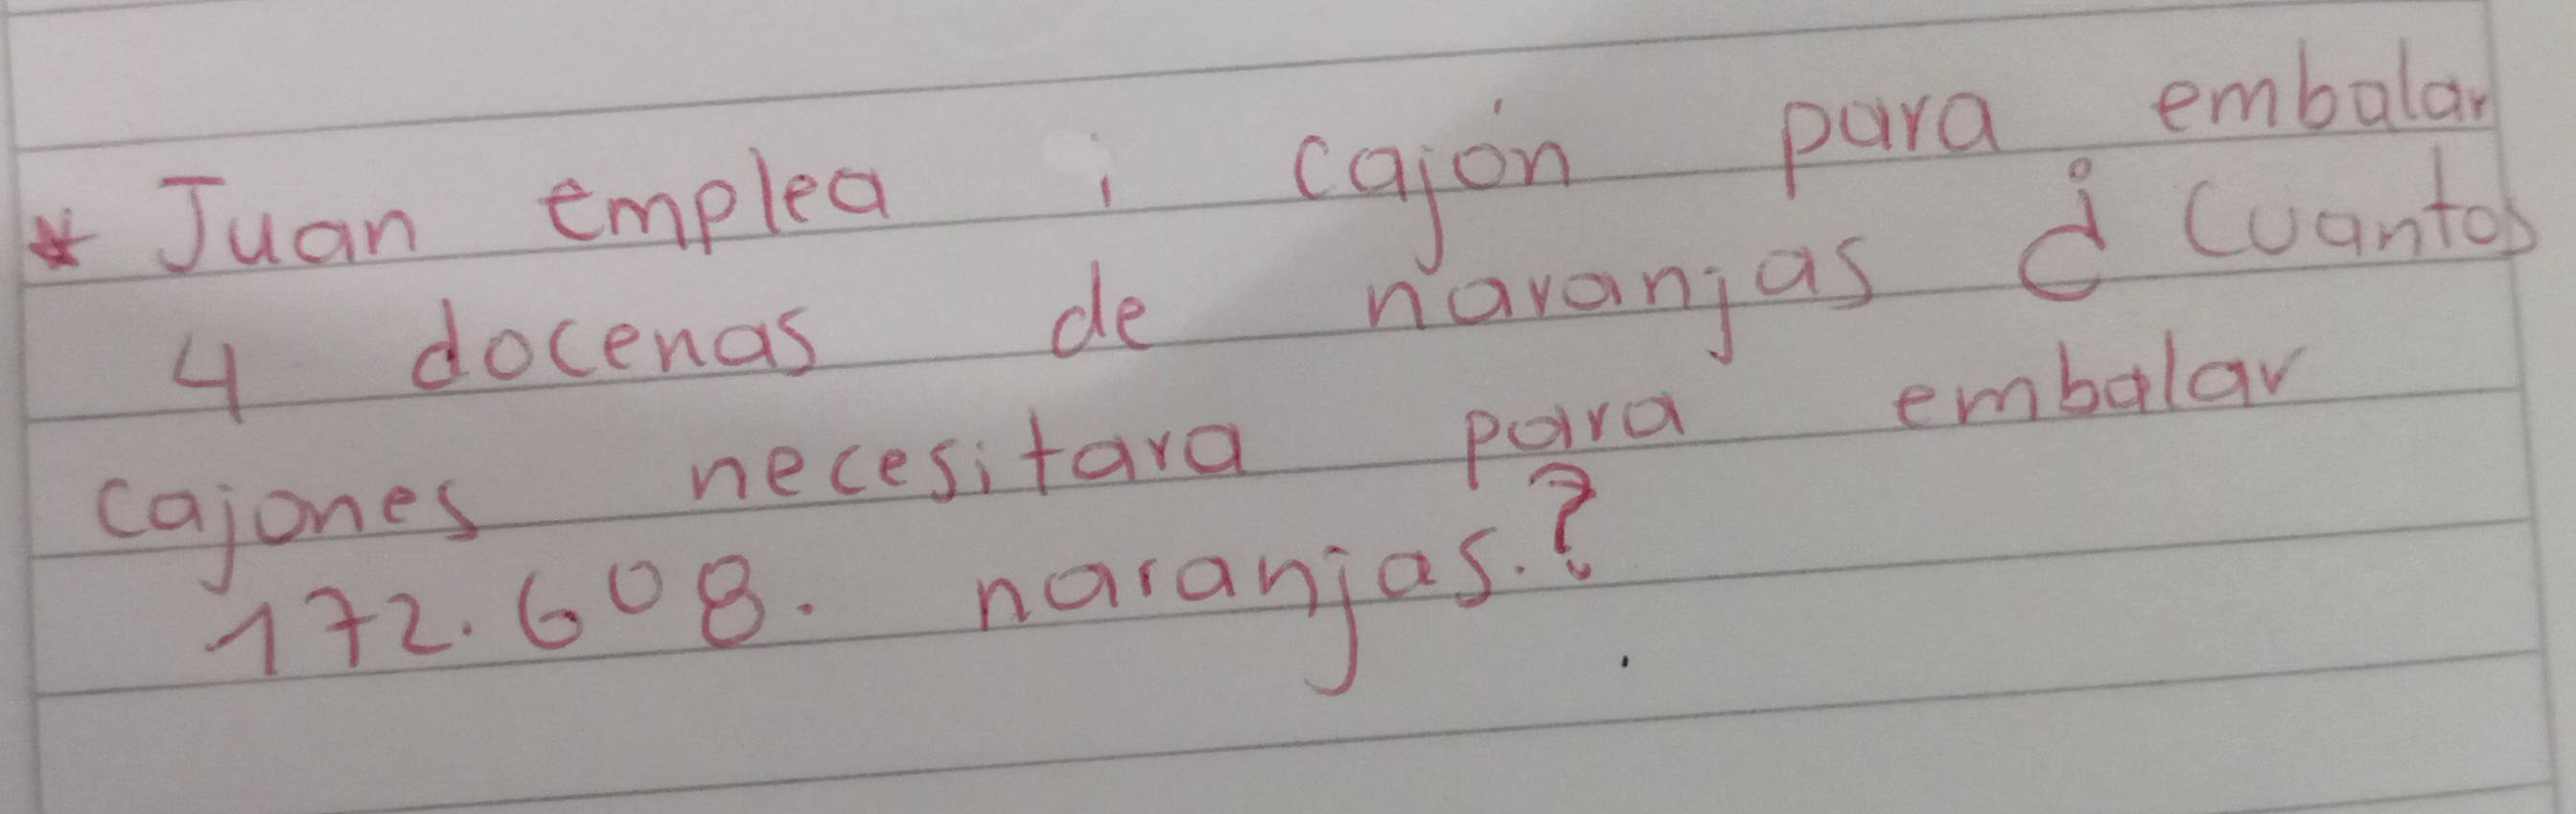 * Juan emplea 1 cajón para embalar
4 docenas de naranjas ¿ Cuantos
cajones necesitara para embalar
172.608. naranjas.?